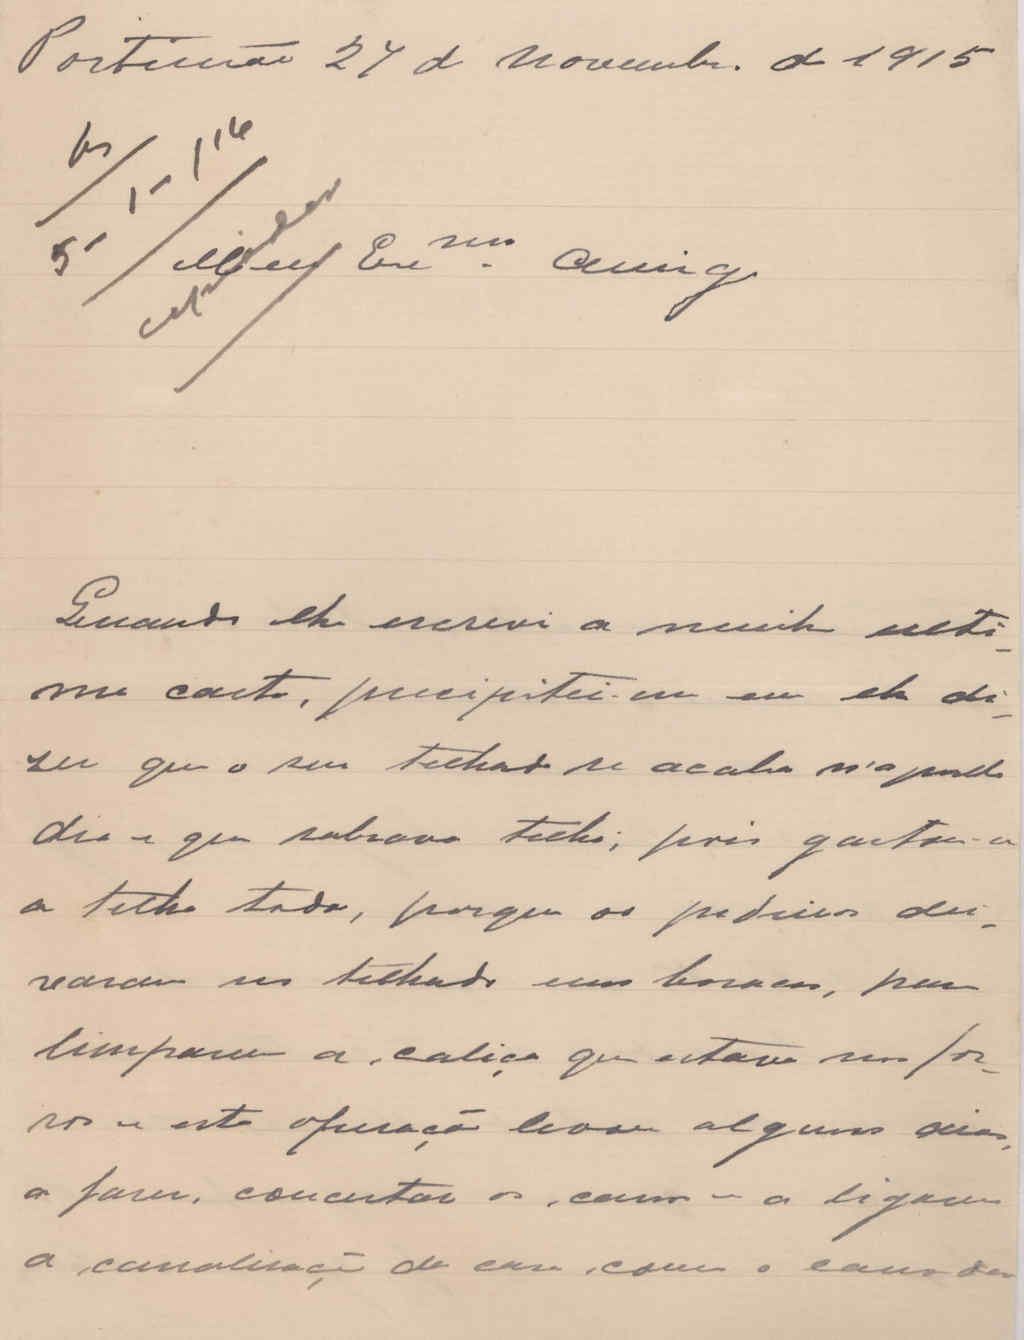 Portimão 27 de Novembro de 1915
5-1-1916
Meu Ex.mo Amigo
Quando lhe escrevi a minha ulti-
ma carta, precipitei-me em lhe di-
zer que o seu telhado se acaba n'aquelle
dia e que sobrava telha; pois gastou-se
a telha toda, porque os pedreiros dei-
xaram no telhado uns buracos, para
limparem a caliça que estava nos for-
ros e esta operação levou alguns dias
a fazer, concertar os canos e a ligarem
a canalisação da casa com o cano da